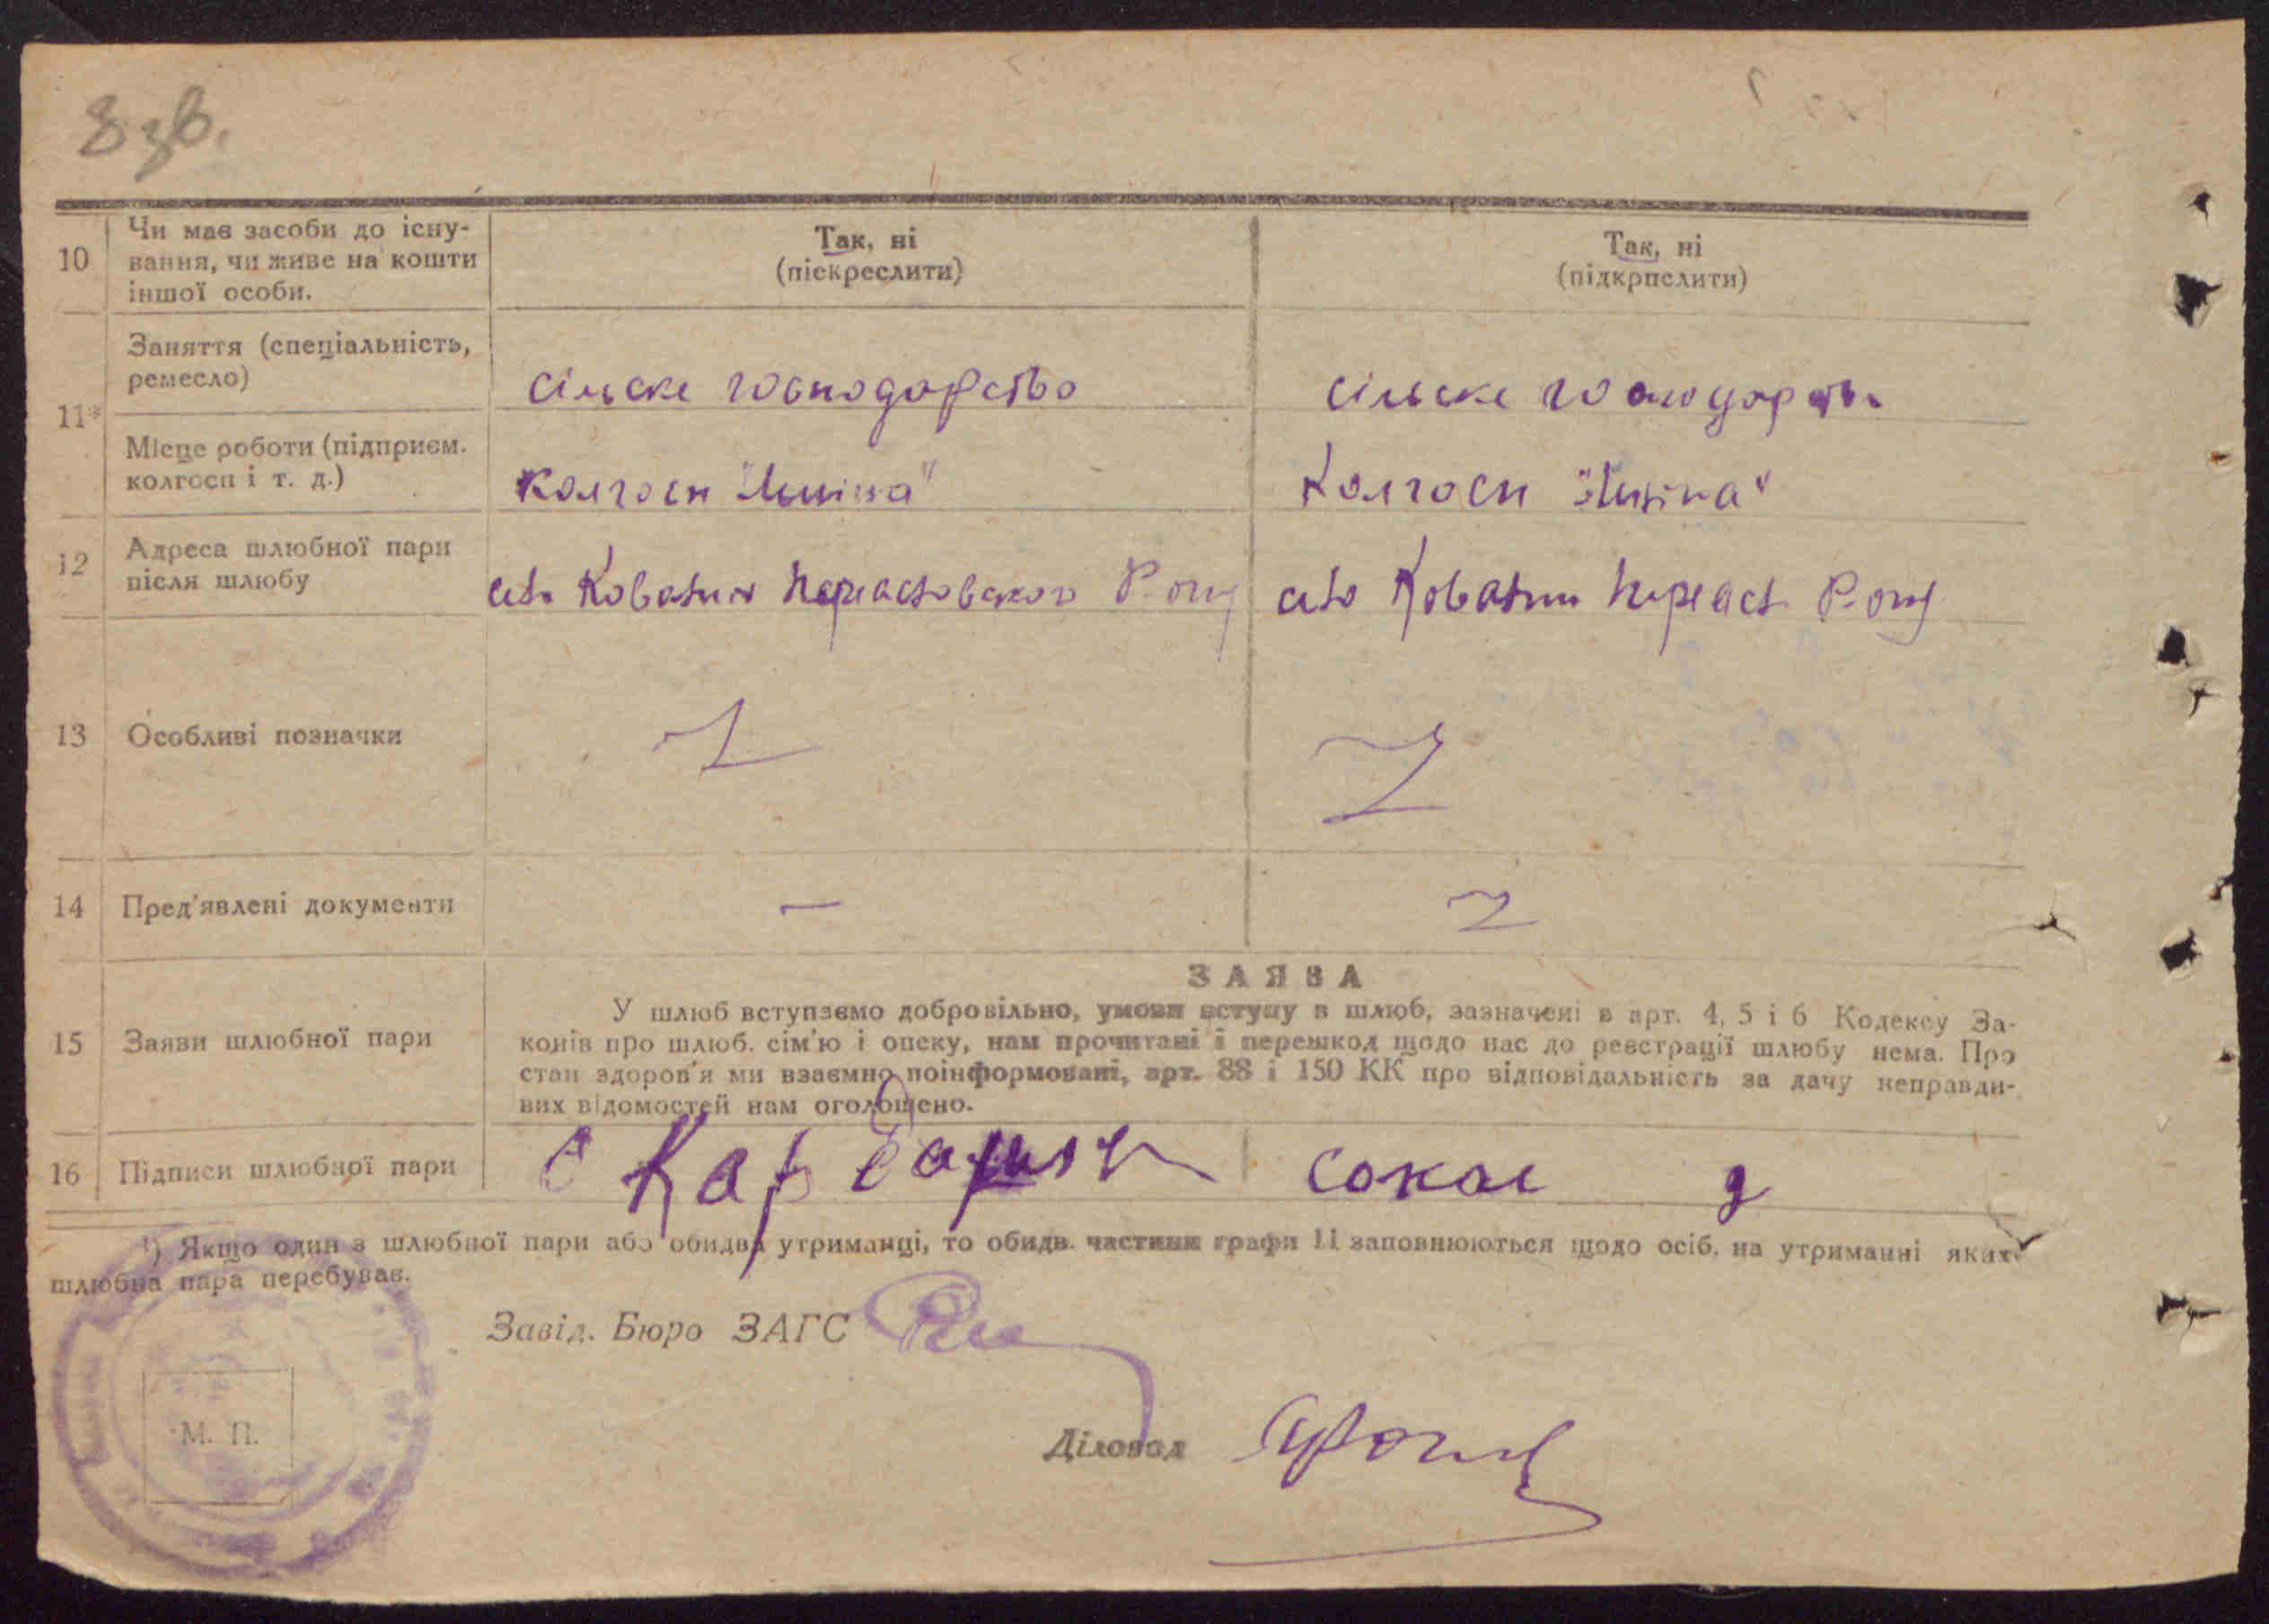 8 зв.
10
Чи має засоби до існу-
вання, чи живе на кошти
іншої особи.
Так, ні
(піекреслити)
Так, ні
(підкрпслити)
11*
Заняття (спеціальність,
ремесло)
сільське господарство
сільське господарство
Місце роботи (підприєм.
колгосп і т. д.)
колгосп "Леніна"
Колгосп "Леніна"
12
Адреса шлюбної пари
після шлюбу
село
село
13
Особливі позначки
14
Пред'явлені документи
—
15
Заяви шлюбної пари
ЗАЯВА
У шлюб вступаємо добровільно, умови вступу в шлюб, зазначені в арт. 4, 5 і 6 Кодексу За-
конів про шлюб. сім'ю і опеку, нам прочитані і перешкод щодо нас до реєстрації шлюбу нема. Про
стан здоров'я ми взаємно поінформовані, арт. 88 і 150 КК про відповідальність за дачу неправди-
вих відомостей нам оголошено.
16
Підписи шлюбної пари
сокол
¹) Якщо один з шлюбної пари або обидва утриманці, то обидв. частини графи 11 заповнюються щодо осіб, на утриманні яких
шлюбна пара перебуває.
Завід. Бюро ЗАГС
М. П.
Діловод